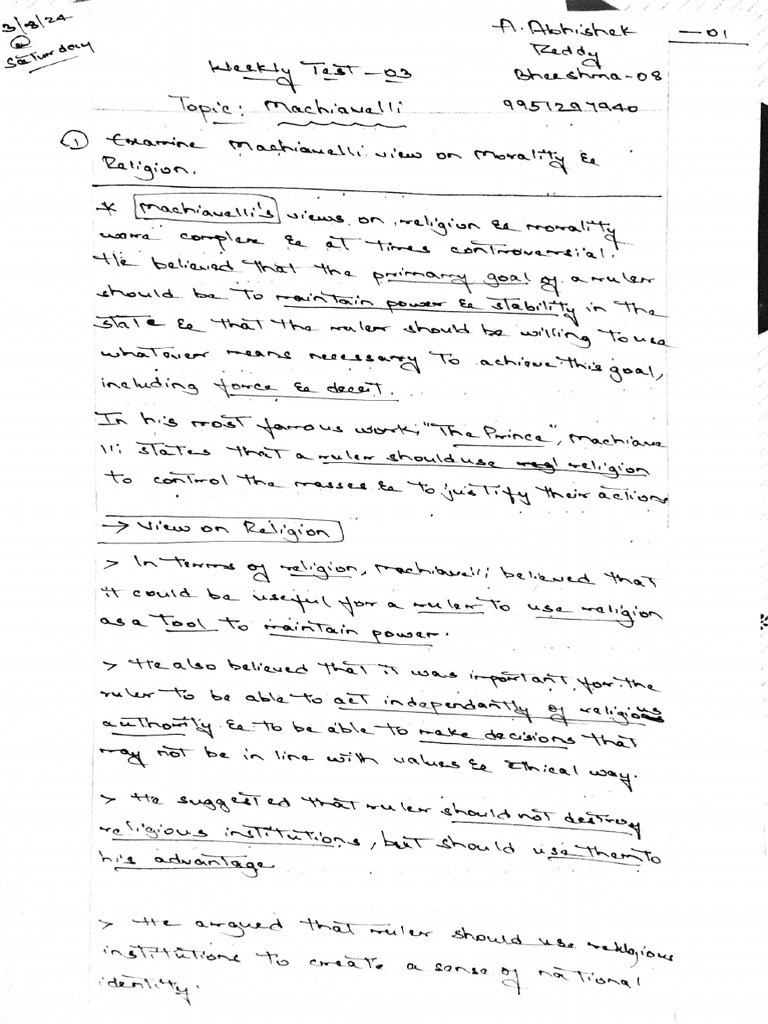 3/8/24
@
Saturday
A. Abhishek
Reddy
— 01
Weekly Test - 03
Bheeshma - 08
Topic: Machiavelli
9951297940
① Examine Machiavelli view on Morality &
Religion.
* Machiavelli's views on religion & morality
were complex & at times controversial.
He believed that the primary goal of a ruler
should be to maintain power & stability in the
state & that the ruler should be willing to use
whatever means necessary to achieve this goal,
including force & deceit.
In his most famous work, "The Prince", Machiave
lli states that a ruler should use religion
to control the masses & to justify their actions
→ View on Religion
> In terms of religion, Machiavelli believed that
it could be useful for a ruler to use religion
as a tool to maintain power.
> He also believed that it was important for the
ruler to be able to act independantly of religious
authority & to be able to make decisions that
may not be in line with values & Ethical way.
> He suggested that ruler should not destroy
religious institutions, but should use them to
his advantage
> He argued that ruler should use religious
institutions to create a sense of national
identity.